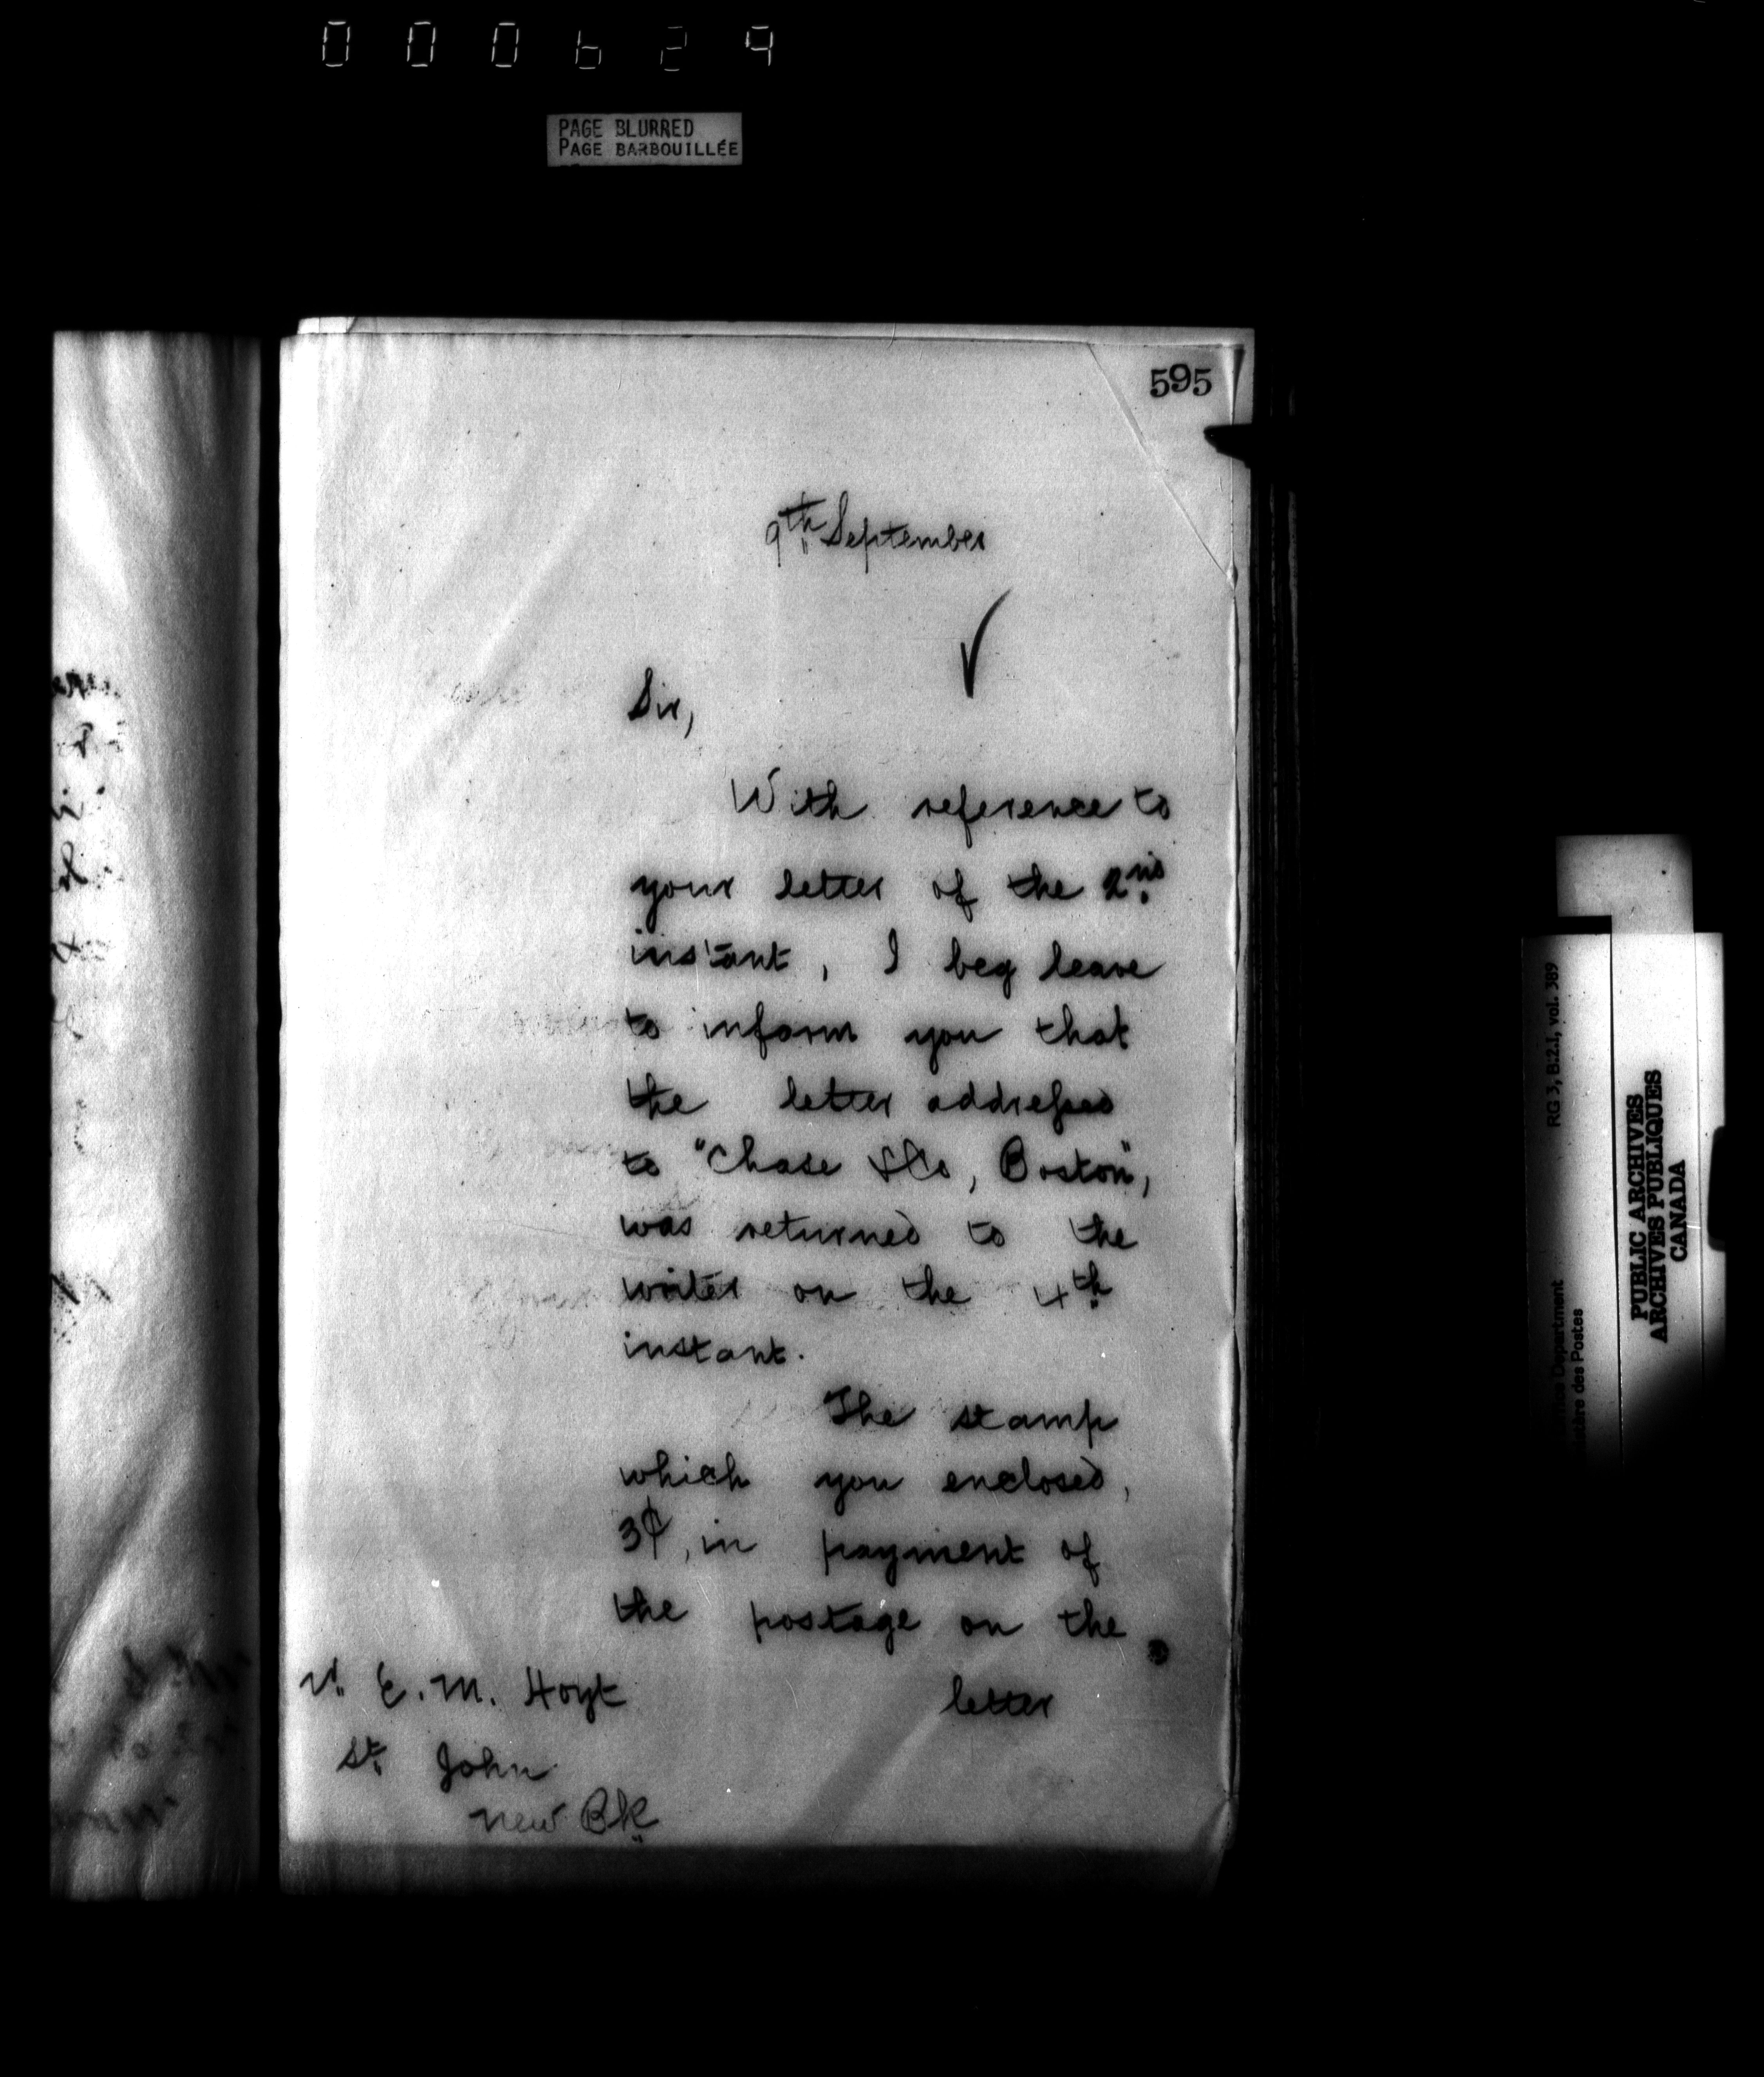 000629
PAGE BLURRED
PAGE BARBOUILLÉE
595
9th September
Sir,
With reference to
your letter of the 2nd
instant, I beg leave
to inform you that
the letter addressed
to "Chase & Co, Boston",
was returned to the
writer on the 4th
instant.
The stamp
which you enclosed,
3¢, in payment of
the postage on the
letter
E. M. Hoyt
St John
New Bk
RG 3, B.2.1, vol. 389
Department
des Postes
PUBLIC ARCHIVES
ARCHIVES PUBLIQUES
CANADA